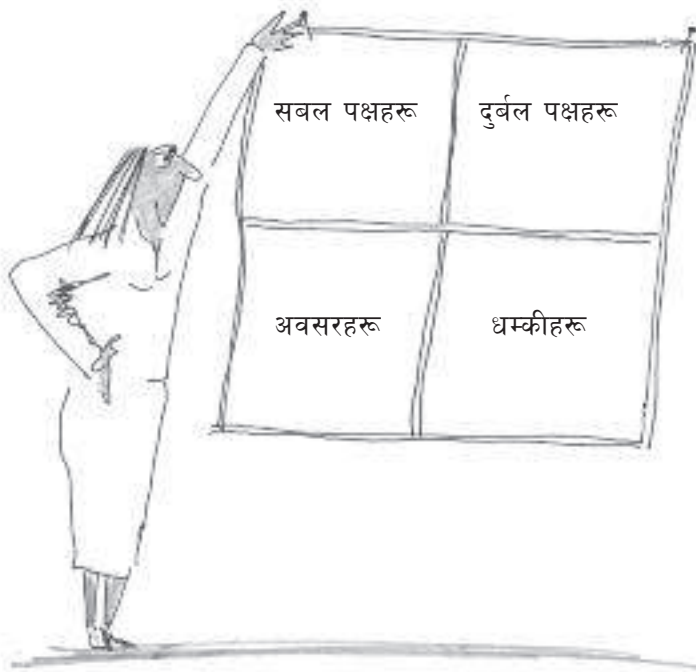 सबल पक्षहरू
दुर्बल पक्षहरू
अवसरहरू
धम्कीहरू